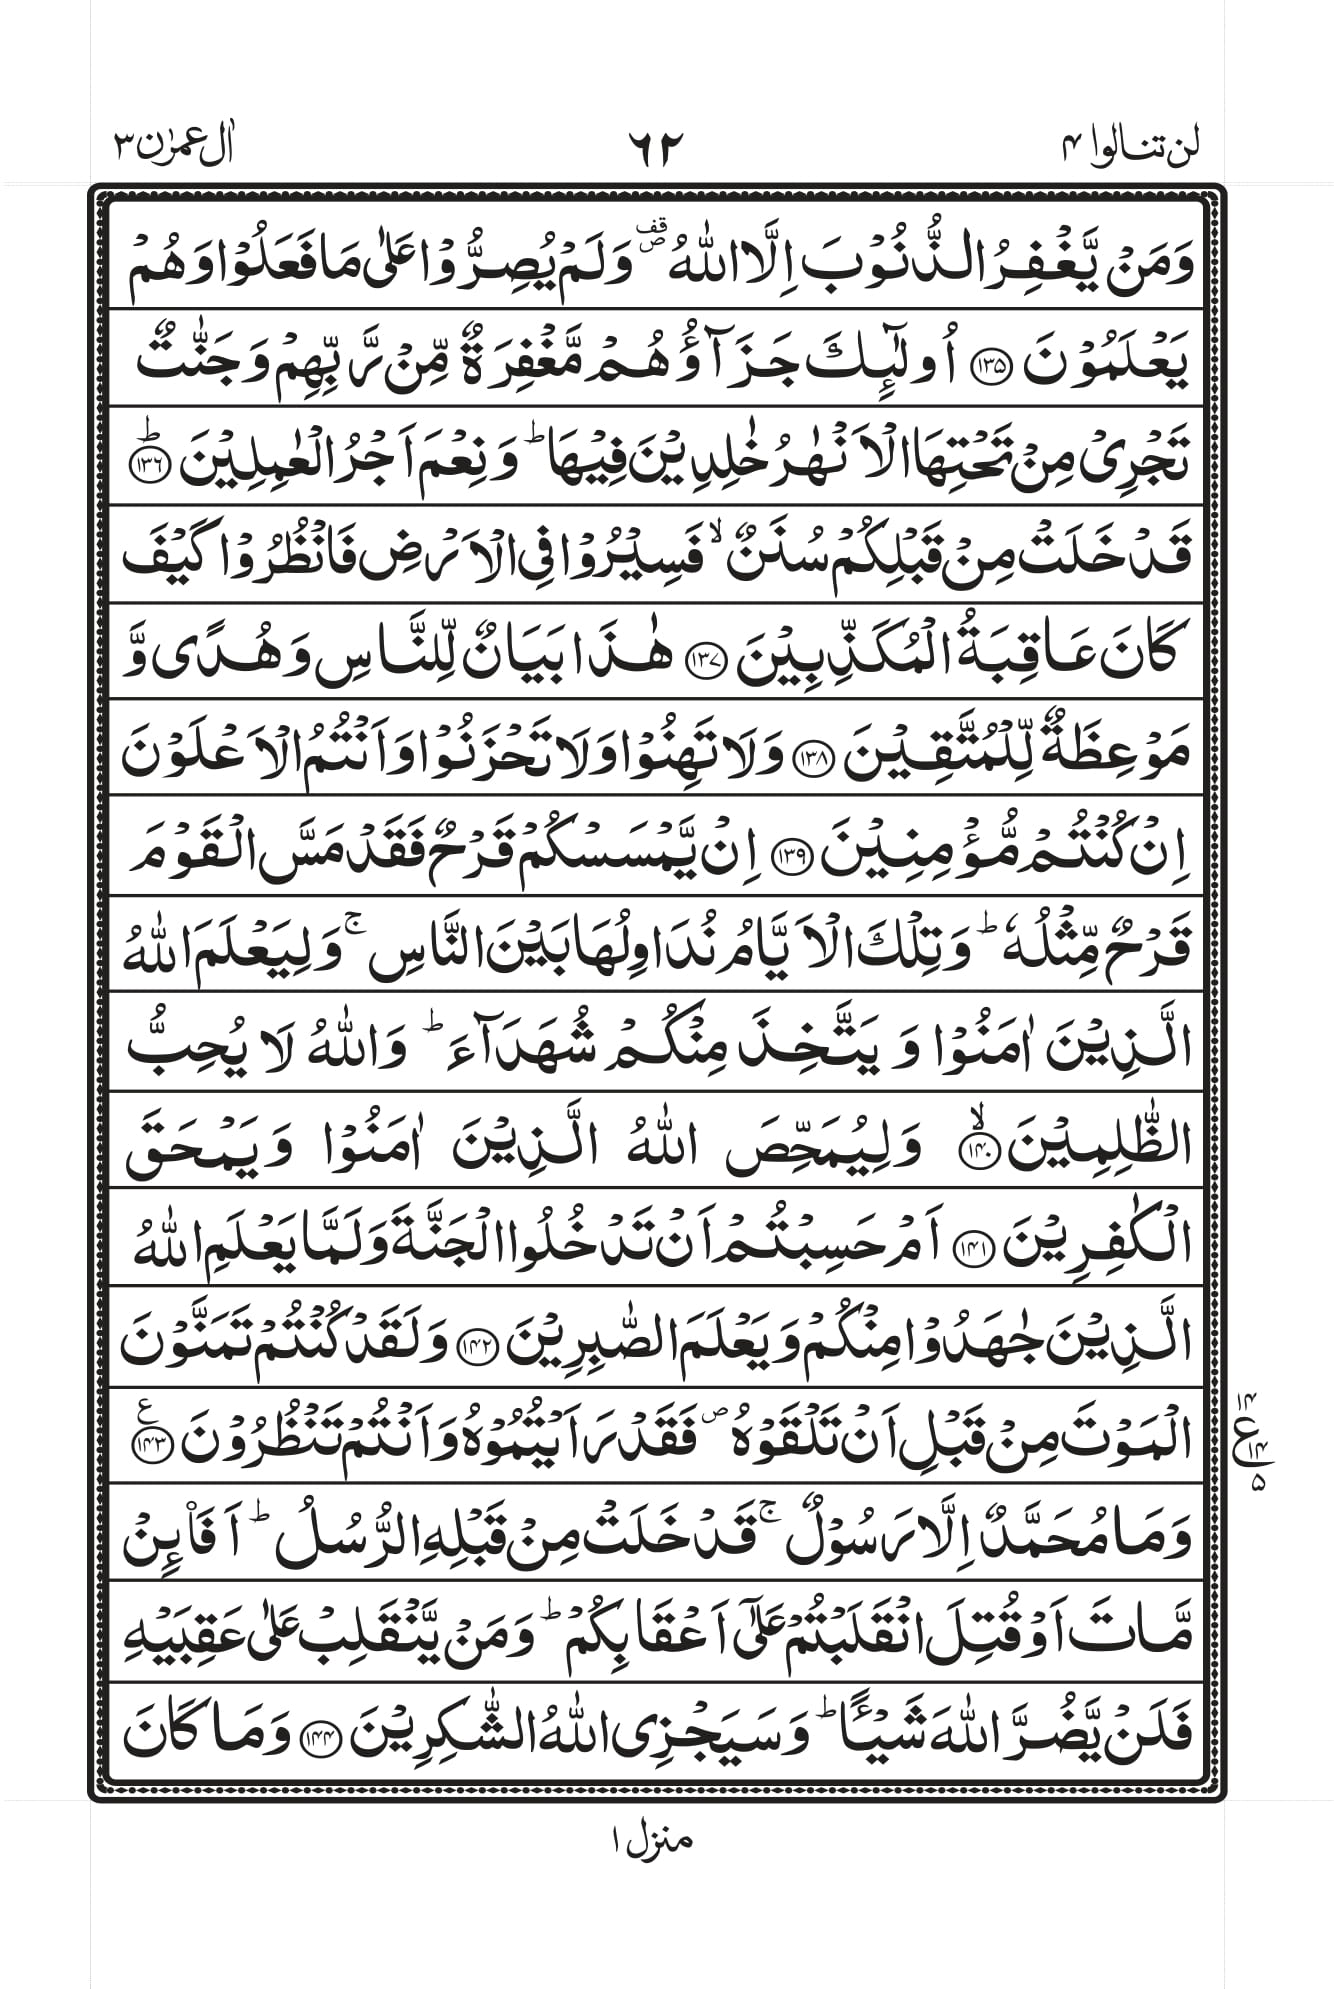 لن تنالوا ۴
۶۲
اٰل عمرٰن ۳
وَمَنۡ يَّغۡفِرُ الذُّنُوۡبَ اِلَّا اللّٰهُ ۪ۖ وَلَمۡ يُصِرُّوۡا عَلٰى مَا فَعَلُوۡا وَهُمۡ
يَعۡلَمُوۡنَ ﴿۱۳۵﴾ اُولٰٓٮِٕكَ جَزَآؤُهُمۡ مَّغۡفِرَةٌ مِّنۡ رَّبِّهِمۡ وَجَنّٰتٌ
تَجۡرِىۡ مِنۡ تَحۡتِهَا الۡاَنۡهٰرُ خٰلِدِيۡنَ فِيۡهَا ؕ وَنِعۡمَ اَجۡرُ الۡعٰمِلِيۡنَ ؕ﴿۱۳۶﴾
قَدۡ خَلَتۡ مِنۡ قَبۡلِكُمۡ سُنَنٌ ۙ فَسِيۡرُوۡا فِى الۡاَرۡضِ فَانۡظُرُوۡا كَيۡفَ
كَانَ عَاقِبَةُ الۡمُكَذِّبِيۡنَ ﴿۱۳۷﴾ هٰذَا بَيَانٌ لِّلنَّاسِ وَهُدًى وَّ
مَوۡعِظَةٌ لِّلۡمُتَّقِيۡنَ ﴿۱۳۸﴾ وَلَا تَهِنُوۡا وَلَا تَحۡزَنُوۡا وَاَنۡتُمُ الۡاَعۡلَوۡنَ
اِنۡ كُنۡتُمۡ مُّؤۡمِنِيۡنَ ﴿۱۳۹﴾ اِنۡ يَّمۡسَسۡكُمۡ قَرۡحٌ فَقَدۡ مَسَّ الۡقَوۡمَ
قَرۡحٌ مِّثۡلُهٗ ؕ وَتِلۡكَ الۡاَيَّامُ نُدَاوِلُهَا بَيۡنَ النَّاسِ ۚ وَلِيَعۡلَمَ اللّٰهُ
الَّذِيۡنَ اٰمَنُوۡا وَيَتَّخِذَ مِنۡكُمۡ شُهَدَآءَ ؕ وَاللّٰهُ لَا يُحِبُّ
الظّٰلِمِيۡنَ ۙ﴿۱۴۰﴾ وَلِيُمَحِّصَ اللّٰهُ الَّذِيۡنَ اٰمَنُوۡا وَيَمۡحَقَ
الۡكٰفِرِيۡنَ ﴿۱۴۱﴾ اَمۡ حَسِبۡتُمۡ اَنۡ تَدۡخُلُوا الۡجَنَّةَ وَلَمَّا يَعۡلَمِ اللّٰهُ
الَّذِيۡنَ جٰهَدُوۡا مِنۡكُمۡ وَيَعۡلَمَ الصّٰبِرِيۡنَ ﴿۱۴۲﴾ وَلَقَدۡ كُنۡتُمۡ تَمَنَّوۡنَ
الۡمَوۡتَ مِنۡ قَبۡلِ اَنۡ تَلۡقَوۡهُ ۖ فَقَدۡ رَاَيۡتُمُوۡهُ وَاَنۡتُمۡ تَنۡظُرُوۡنَ ﴿۱۴۳﴾ ع
۱۴
ع
۱۴
۵
وَمَا مُحَمَّدٌ اِلَّا رَسُوۡلٌ ۚ قَدۡ خَلَتۡ مِنۡ قَبۡلِهِ الرُّسُلُ ؕ اَفَا۟ٮِٕنۡ
مَّاتَ اَوۡ قُتِلَ انْقَلَبۡتُمۡ عَلٰٓى اَعۡقَابِكُمۡ ؕ وَمَنۡ يَّنۡقَلِبۡ عَلٰى عَقِبَيۡهِ
فَلَنۡ يَّضُرَّ اللّٰهَ شَيۡـًٔا ؕ وَسَيَجۡزِى اللّٰهُ الشّٰكِرِيۡنَ ﴿۱۴۴﴾ وَمَا كَانَ
منزل ۱